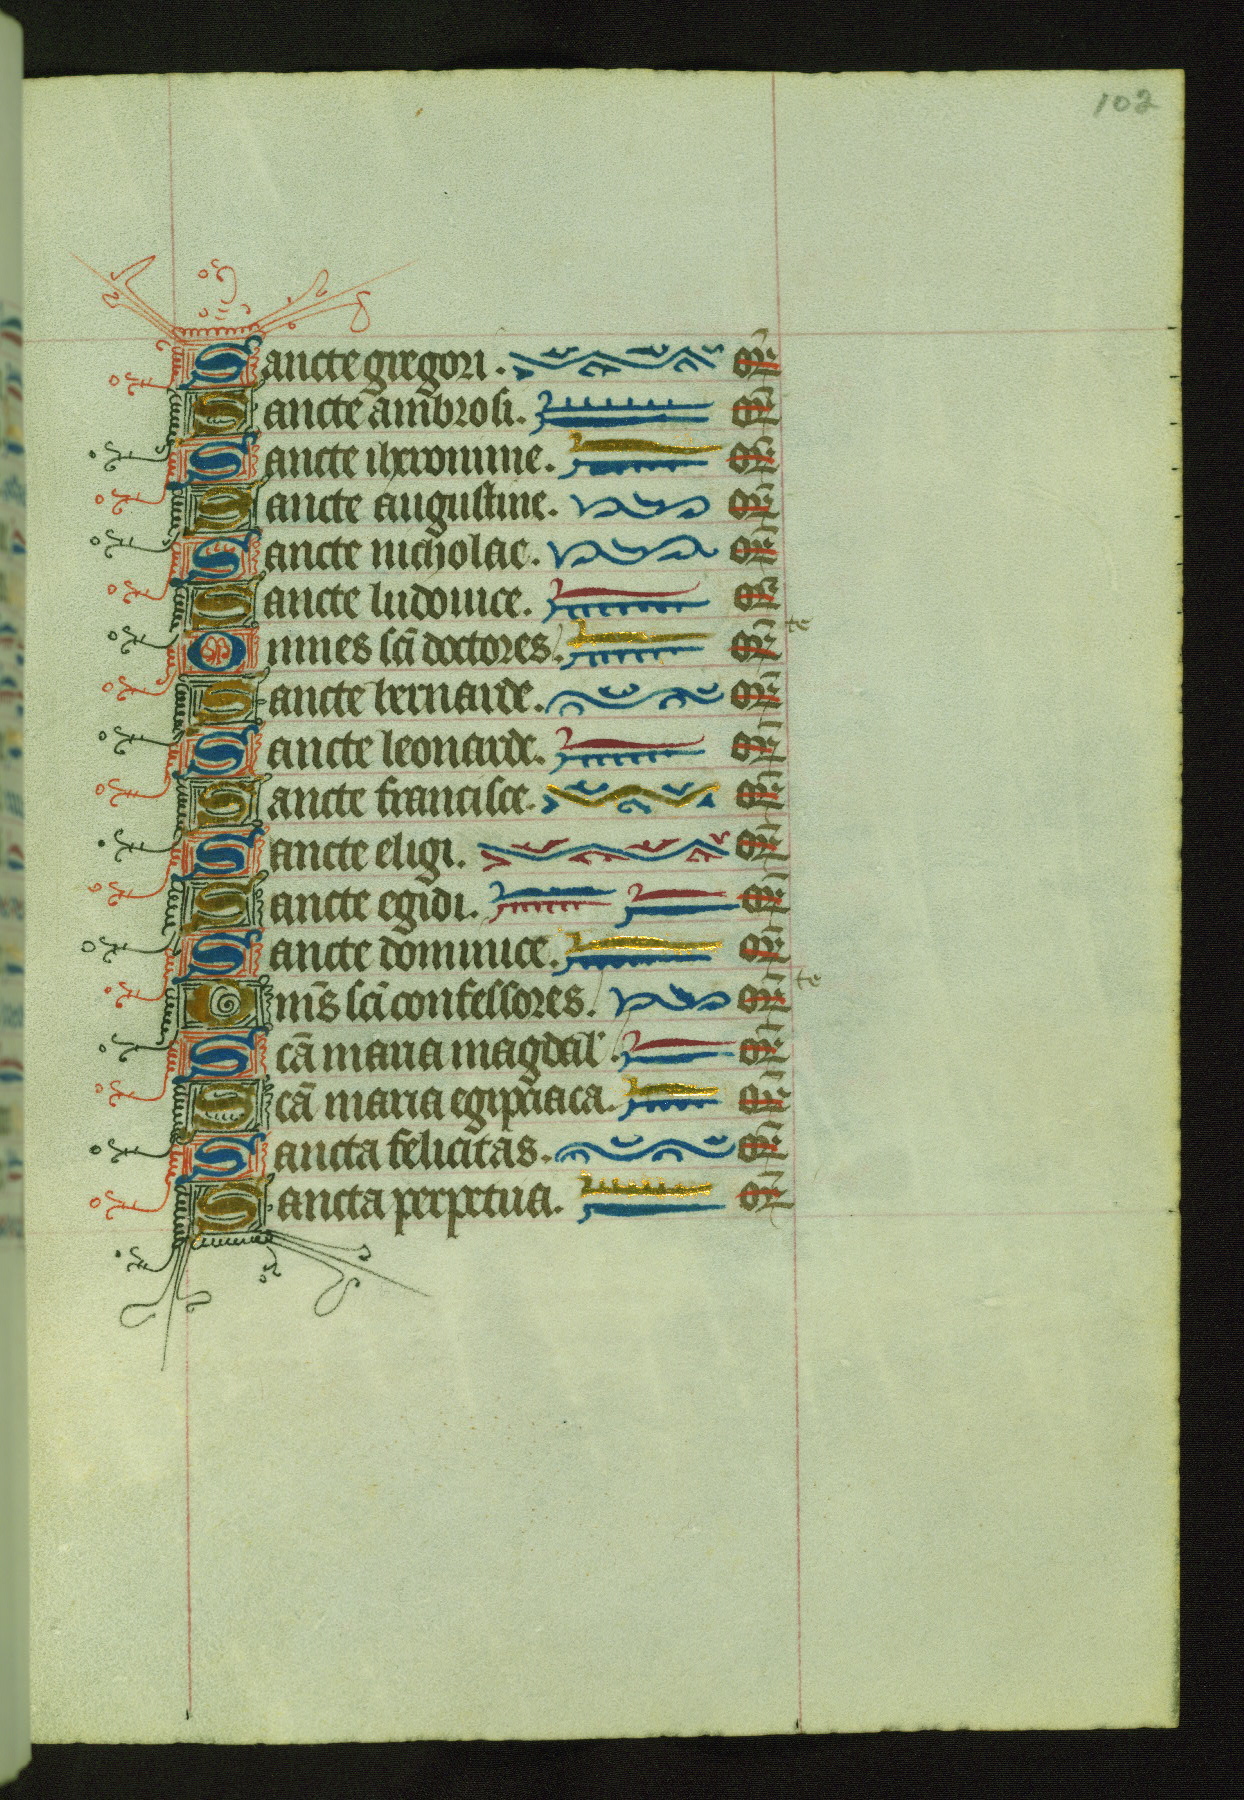 102
Sancte gregori. or̄
Sancte ambrosi. or̄
Sancte iheronime. or̄
Sancte augustine. or̄
Sancte nicholae. or̄
Sancte ludouice. or̄
Omnes sc̄i doctores. or̄ te
Sancte bernarde. or̄
Sancte leonarde. or̄
Sancte francisce. or̄
Sancte eligi. or̄
Sancte egidi. or̄
Sancte dominice. or̄
Om̄s sc̄i confessores. or̄ te
Sc̄a maria magdal'. or̄
Sc̄a maria egipciaca. or̄
Sancta felicitas. or̄
Sancta perpetua. or̄